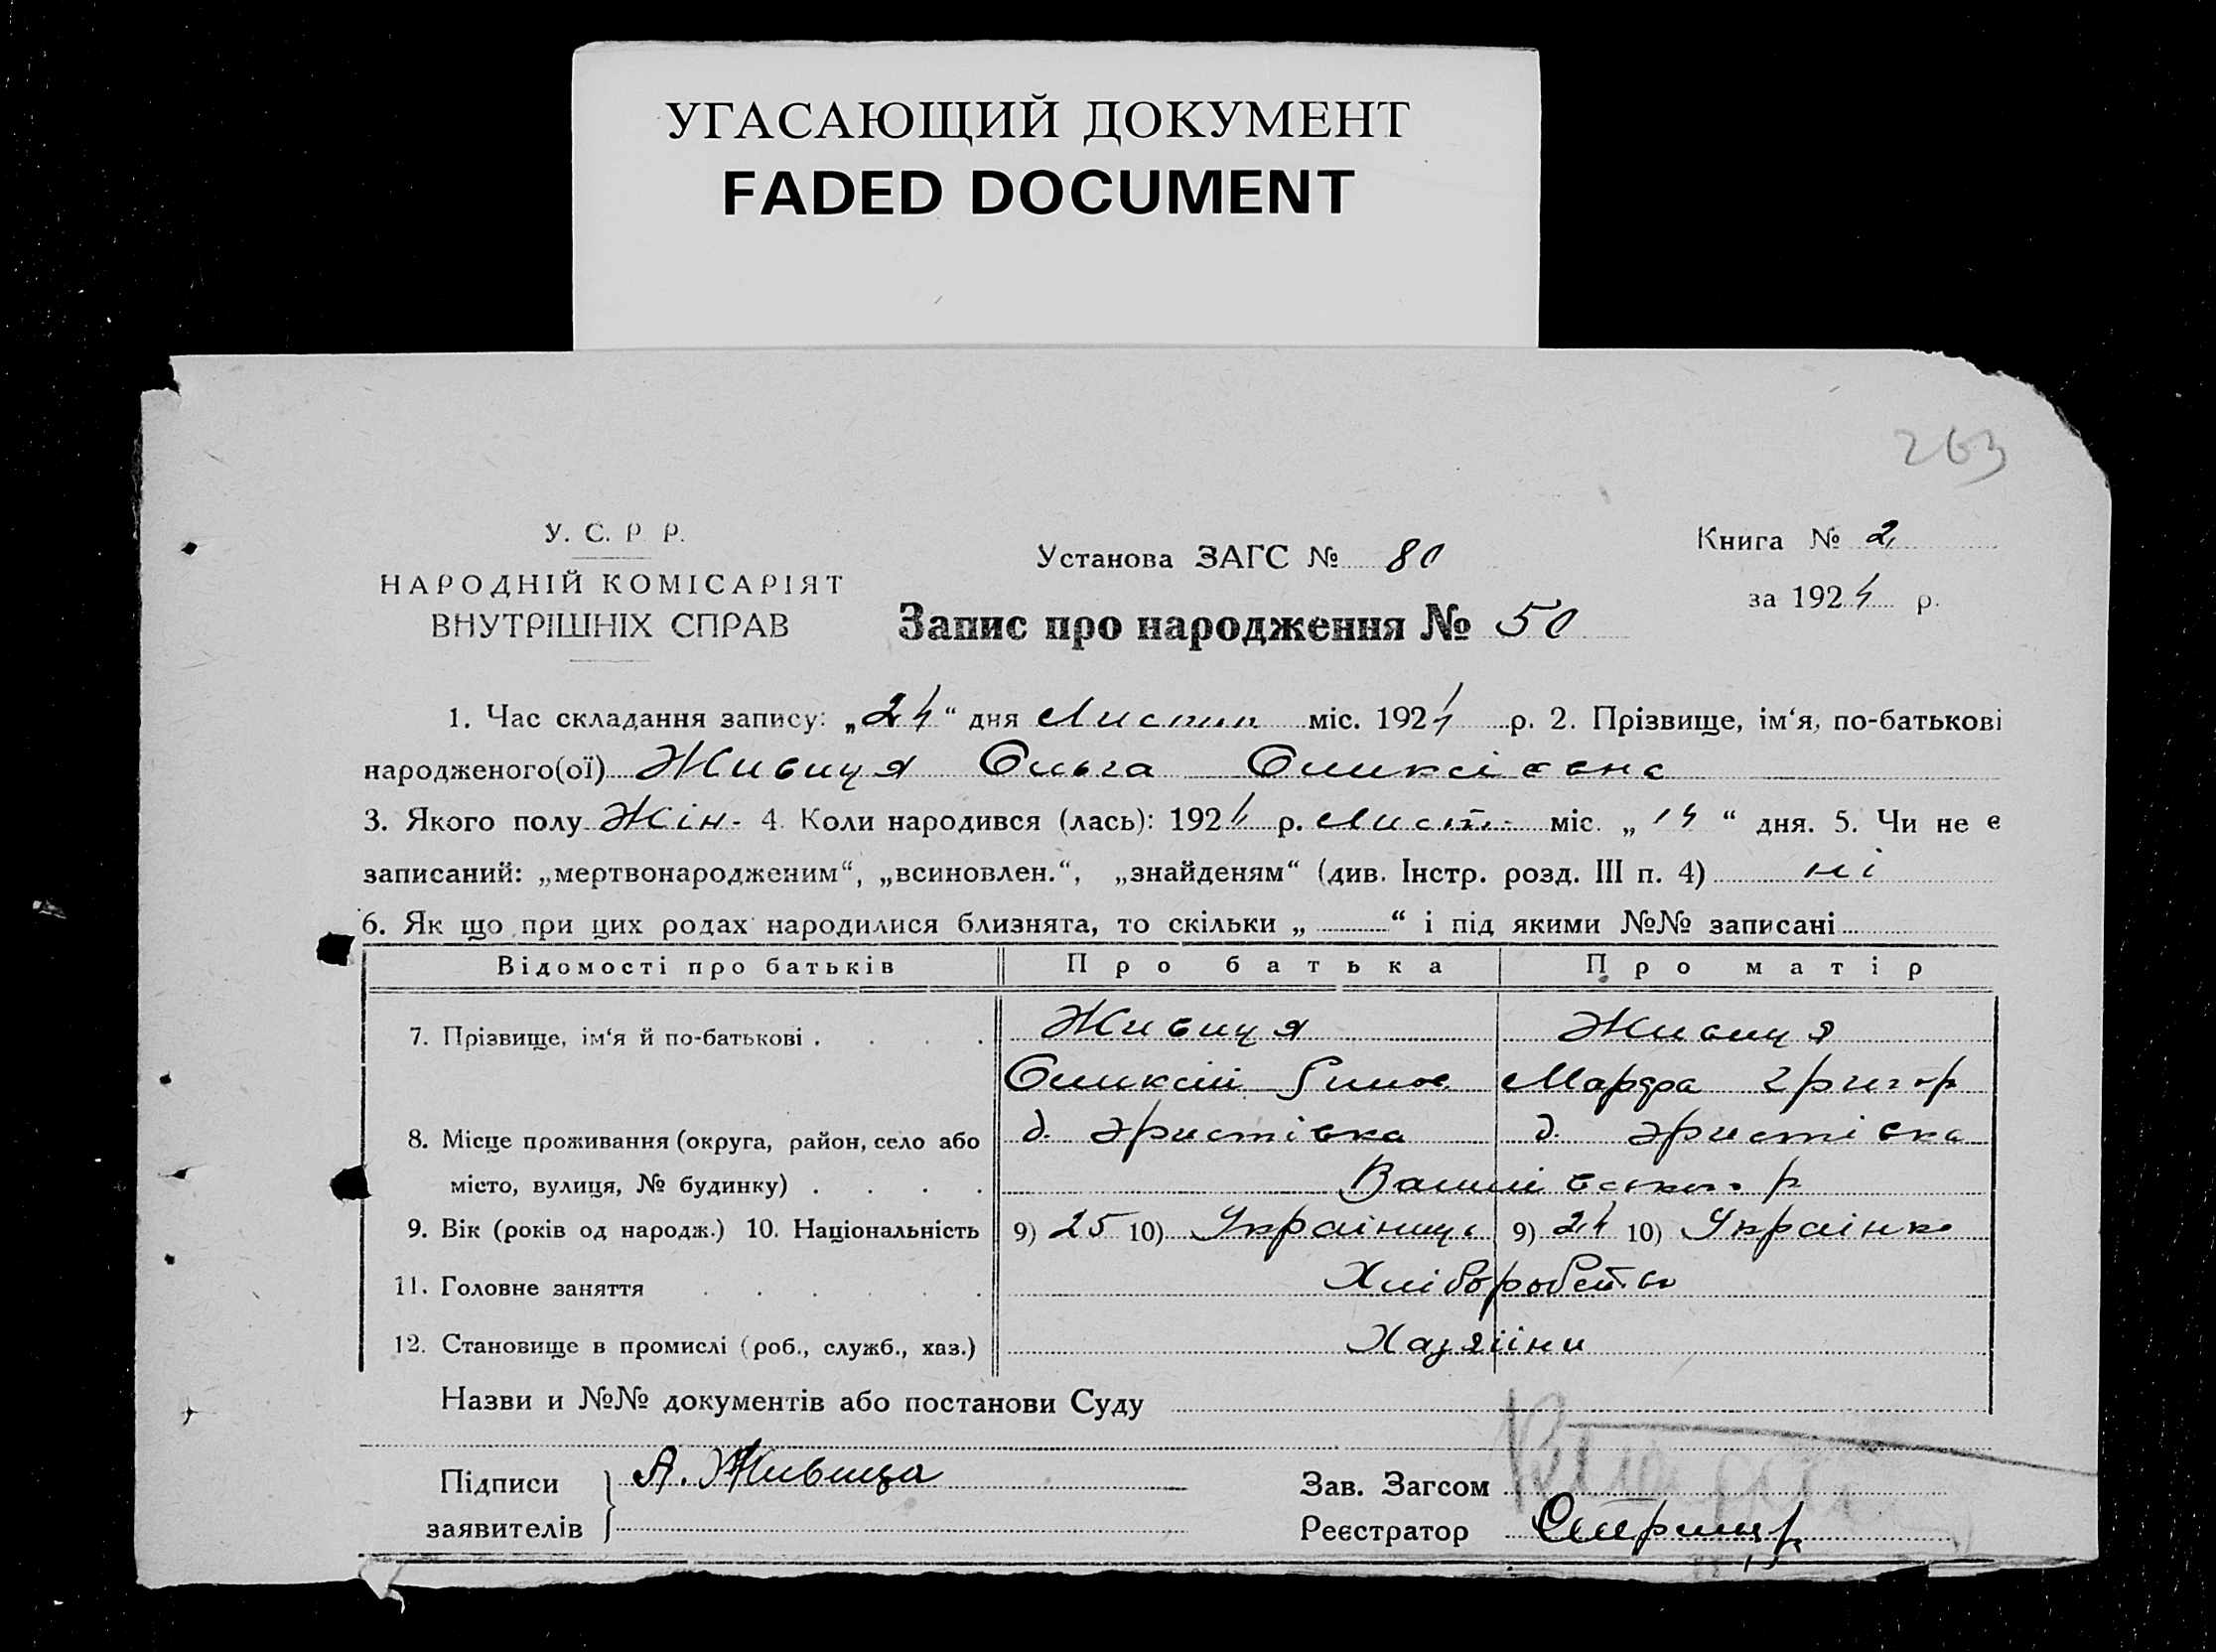 УГАСАЮЩИЙ ДОКУМЕНТ
FADED DOCUMENT
263
У. С. Р. Р.
НАРОДНІЙ КОМІСАРІЯТ
ВНУТРІШНІХ СПРАВ
Установа ЗАГС № 80
Запис про народження № 50
Книга № 2
за 1924 р.
1. Час складання запису: „24“ дня Листоп міс. 1924 р. 2. Прізвище, ім‘я, по-батькові
народженого(ої) Живиця Ольга Оликсієвна
3. Якого полу Жін. 4. Коли народився (лась): 1924 р. Лист. міс. „14“ дня. 5. Чи не є
записаний: „мертвонародженим“, „всиновлен.“, „знайденям“ (див. Інстр. розд. III п. 4) ні
6. Як що при цих родах народилися близнята, то скільки „ “ і під якими №№ записані
Відомості про батьків Про батька Про матір
7. Прізвище, ім‘я й по-батькові . . . . Живиця Живиця
Оликсій Марфа Григор
8. Місце проживання (округа, район, село або д. Эристівка д. Эристівка
місто, вулиця, № будинку) . . . . р
9. Вік (років од народж.) 10. Національність 9) 25 10) Українець 9) 24 10) Українка
11. Головне заняття . . . . . . Хліборобств
12. Становище в промислі (роб., служб., хаз.) Хазяїни
Назви и №№ документів або постанови Суду
Підписи А. Живица
заявителів
Зав. Загсом
Реєстратор